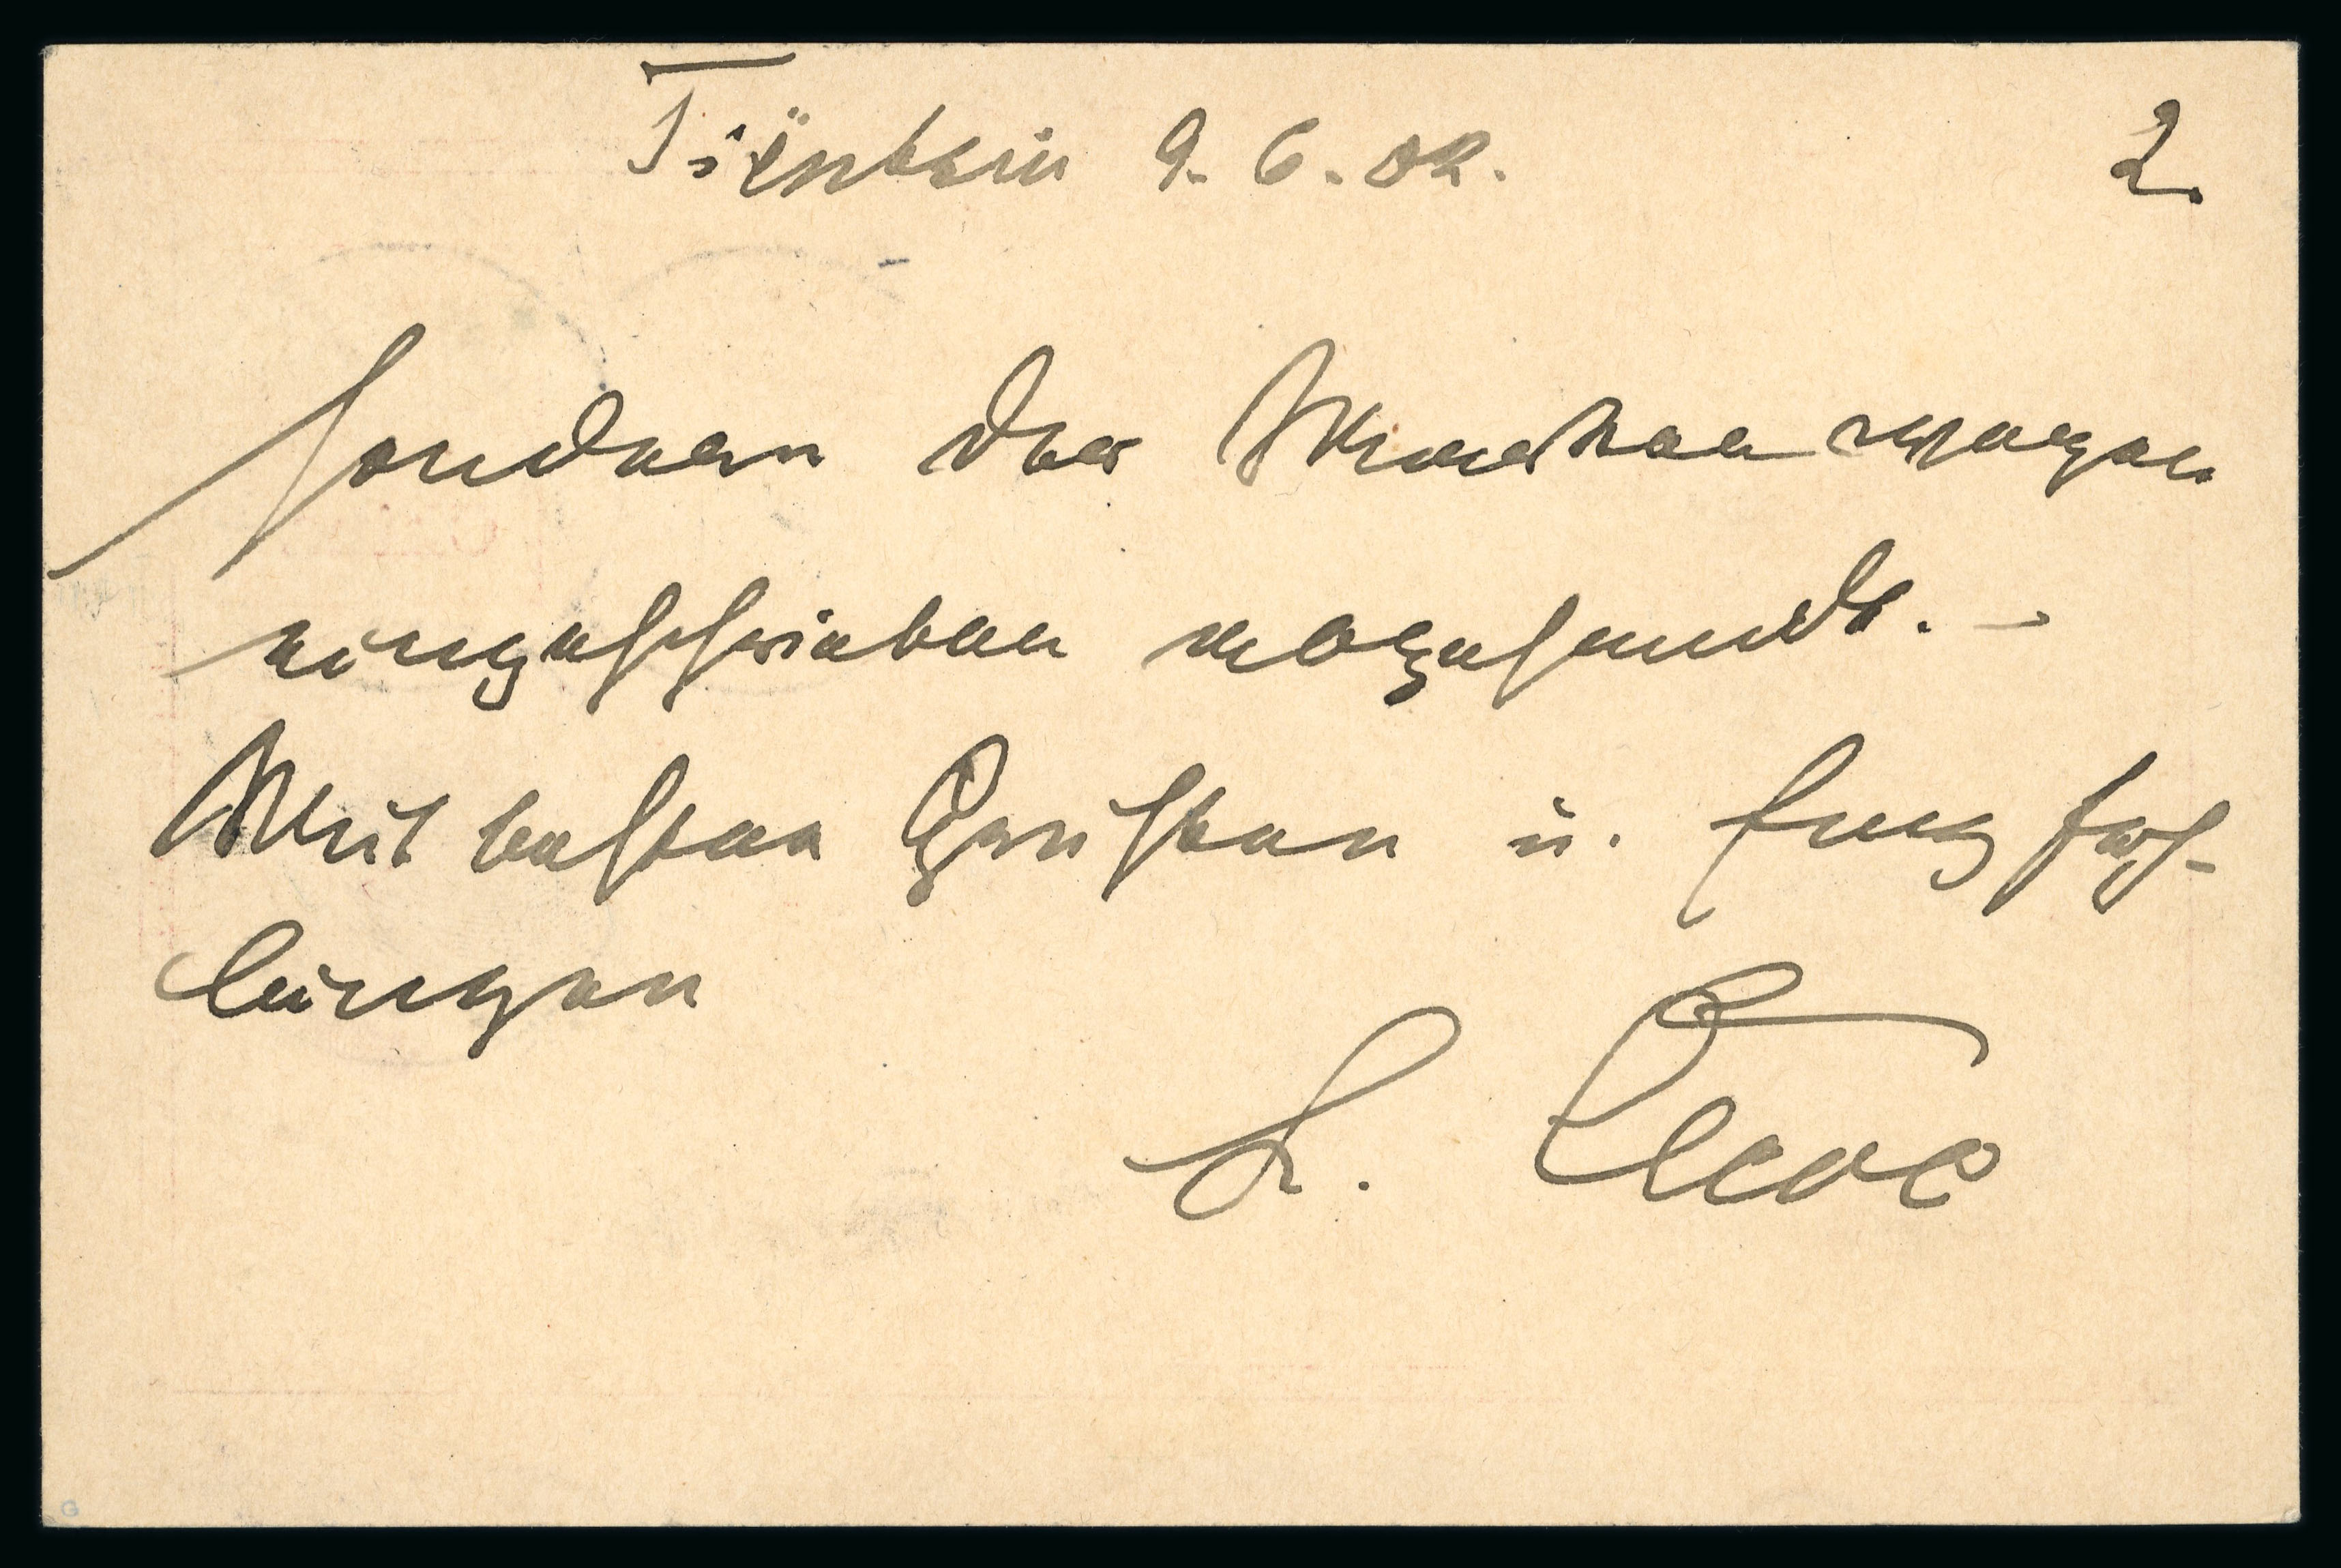 Tiëntsin 9. 6. 02. 2.
sondern der Marken wegen
eingeschrieben abgesandt. –
Mit besten Grüssen u. Empfeh-
lungen